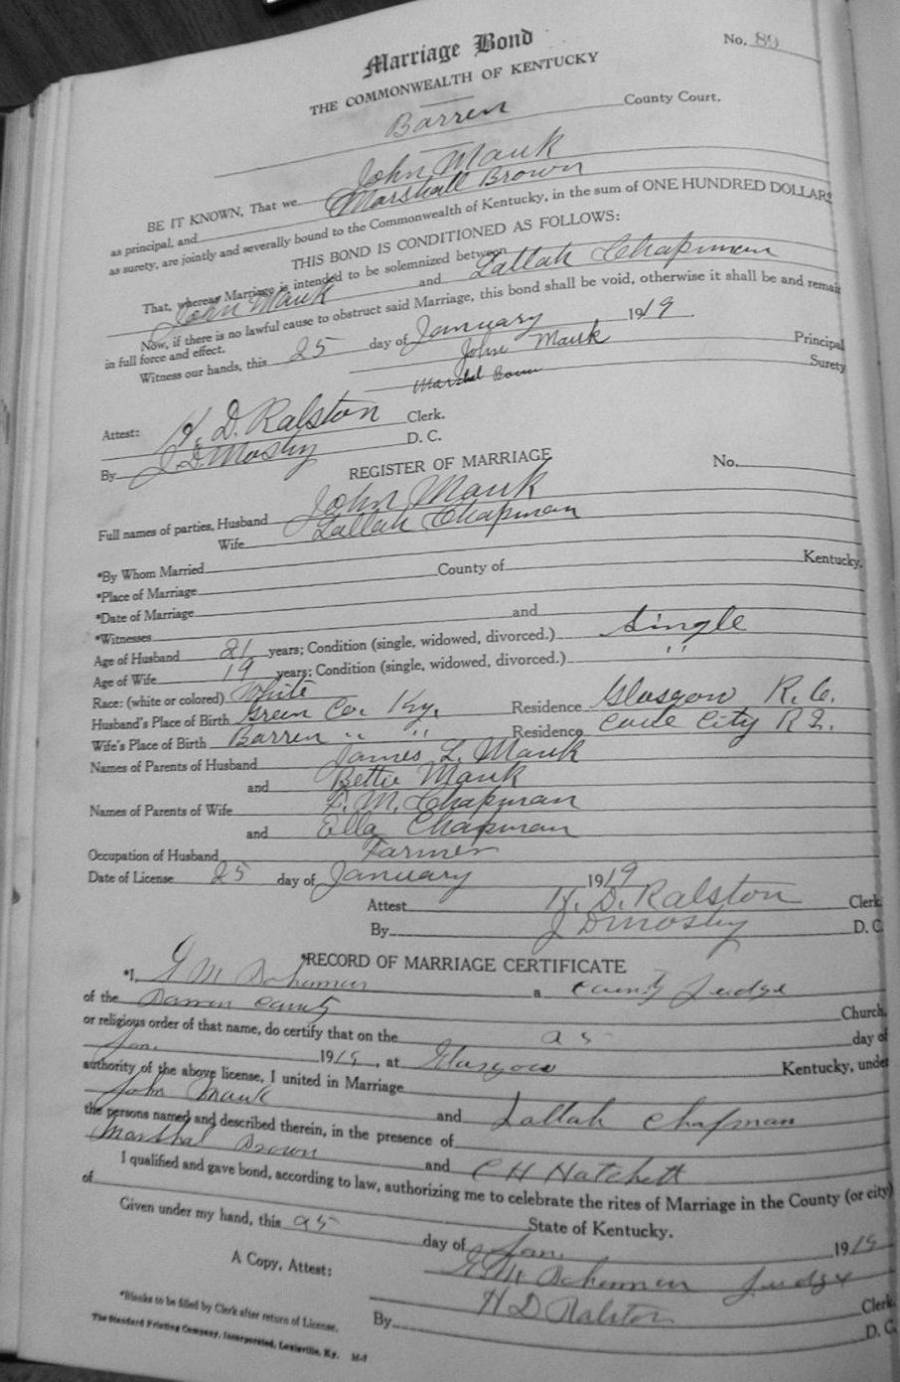 Marriage Bond
No. 89
THE COMMONWEALTH OF KENTUCKY
Barren County Court.
John Mauk
BE IT KNOWN, That we
Marshall Brown
as principal, and
as surety, are jointly and severally bound to the Commonwealth of Kentucky, in the sum of ONE HUNDRED DOLLARS
THIS BOND IS CONDITIONED AS FOLLOWS:
That, whereas Marriage is intended to be solemnized between
John Mauk and Lallah Chapman
Now, if there is no lawful cause to obstruct said Marriage, this bond shall be void, otherwise it shall be and remain
in full force and effect.
Witness our hands, this 25 day of January 1919
John Mauk Principal
Surety
Attest: H. D. Ralston Clerk.
By J. D. Mosby D. C.
REGISTER OF MARRIAGE No.
Full names of parties, Husband John Mauk
Wife Lallah Chapman
*By Whom Married
*Place of Marriage County of Kentucky.
*Date of Marriage
*Witnesses and
Age of Husband 21 years; Condition (single, widowed, divorced.) Single
Age of Wife 19 years; Condition (single, widowed, divorced.) "
Race: (white or colored) White
Husband's Place of Birth Green Co. Ky. Residence Glasgow R. 6.
Wife's Place of Birth Barren " " Residence Cave City R 2.
Names of Parents of Husband James L. Mauk
and Bettie Mauk
Names of Parents of Wife P. M. Chapman
and Ella Chapman
Occupation of Husband Farmer
Date of License 25 day of January 1919
Attest H. D. Ralston Clerk
By J D Mosby D. C
*RECORD OF MARRIAGE CERTIFICATE
*I, G M a county Judge
of the Barren County Church,
or religious order of that name, do certify that on the 25 day of
Jan. 1919, at Glasgow Kentucky, under
authority of the above license, I united in Marriage
John Mauk and Lallah Chapman
the persons named and described therein, in the presence of
Marshal Brown and C H Hatchett
I qualified and gave bond, according to law, authorizing me to celebrate the rites of Marriage in the County (or city)
of State of Kentucky.
Given under my hand, this 25 day of Jan. 1919
Judge
A Copy, Attest: H D Ralston Clerk
By D. C.
*Blanks to be filled by Clerk after return of License.
The Standard Printing Company, Incorporated, Louisville, Ky. M-7